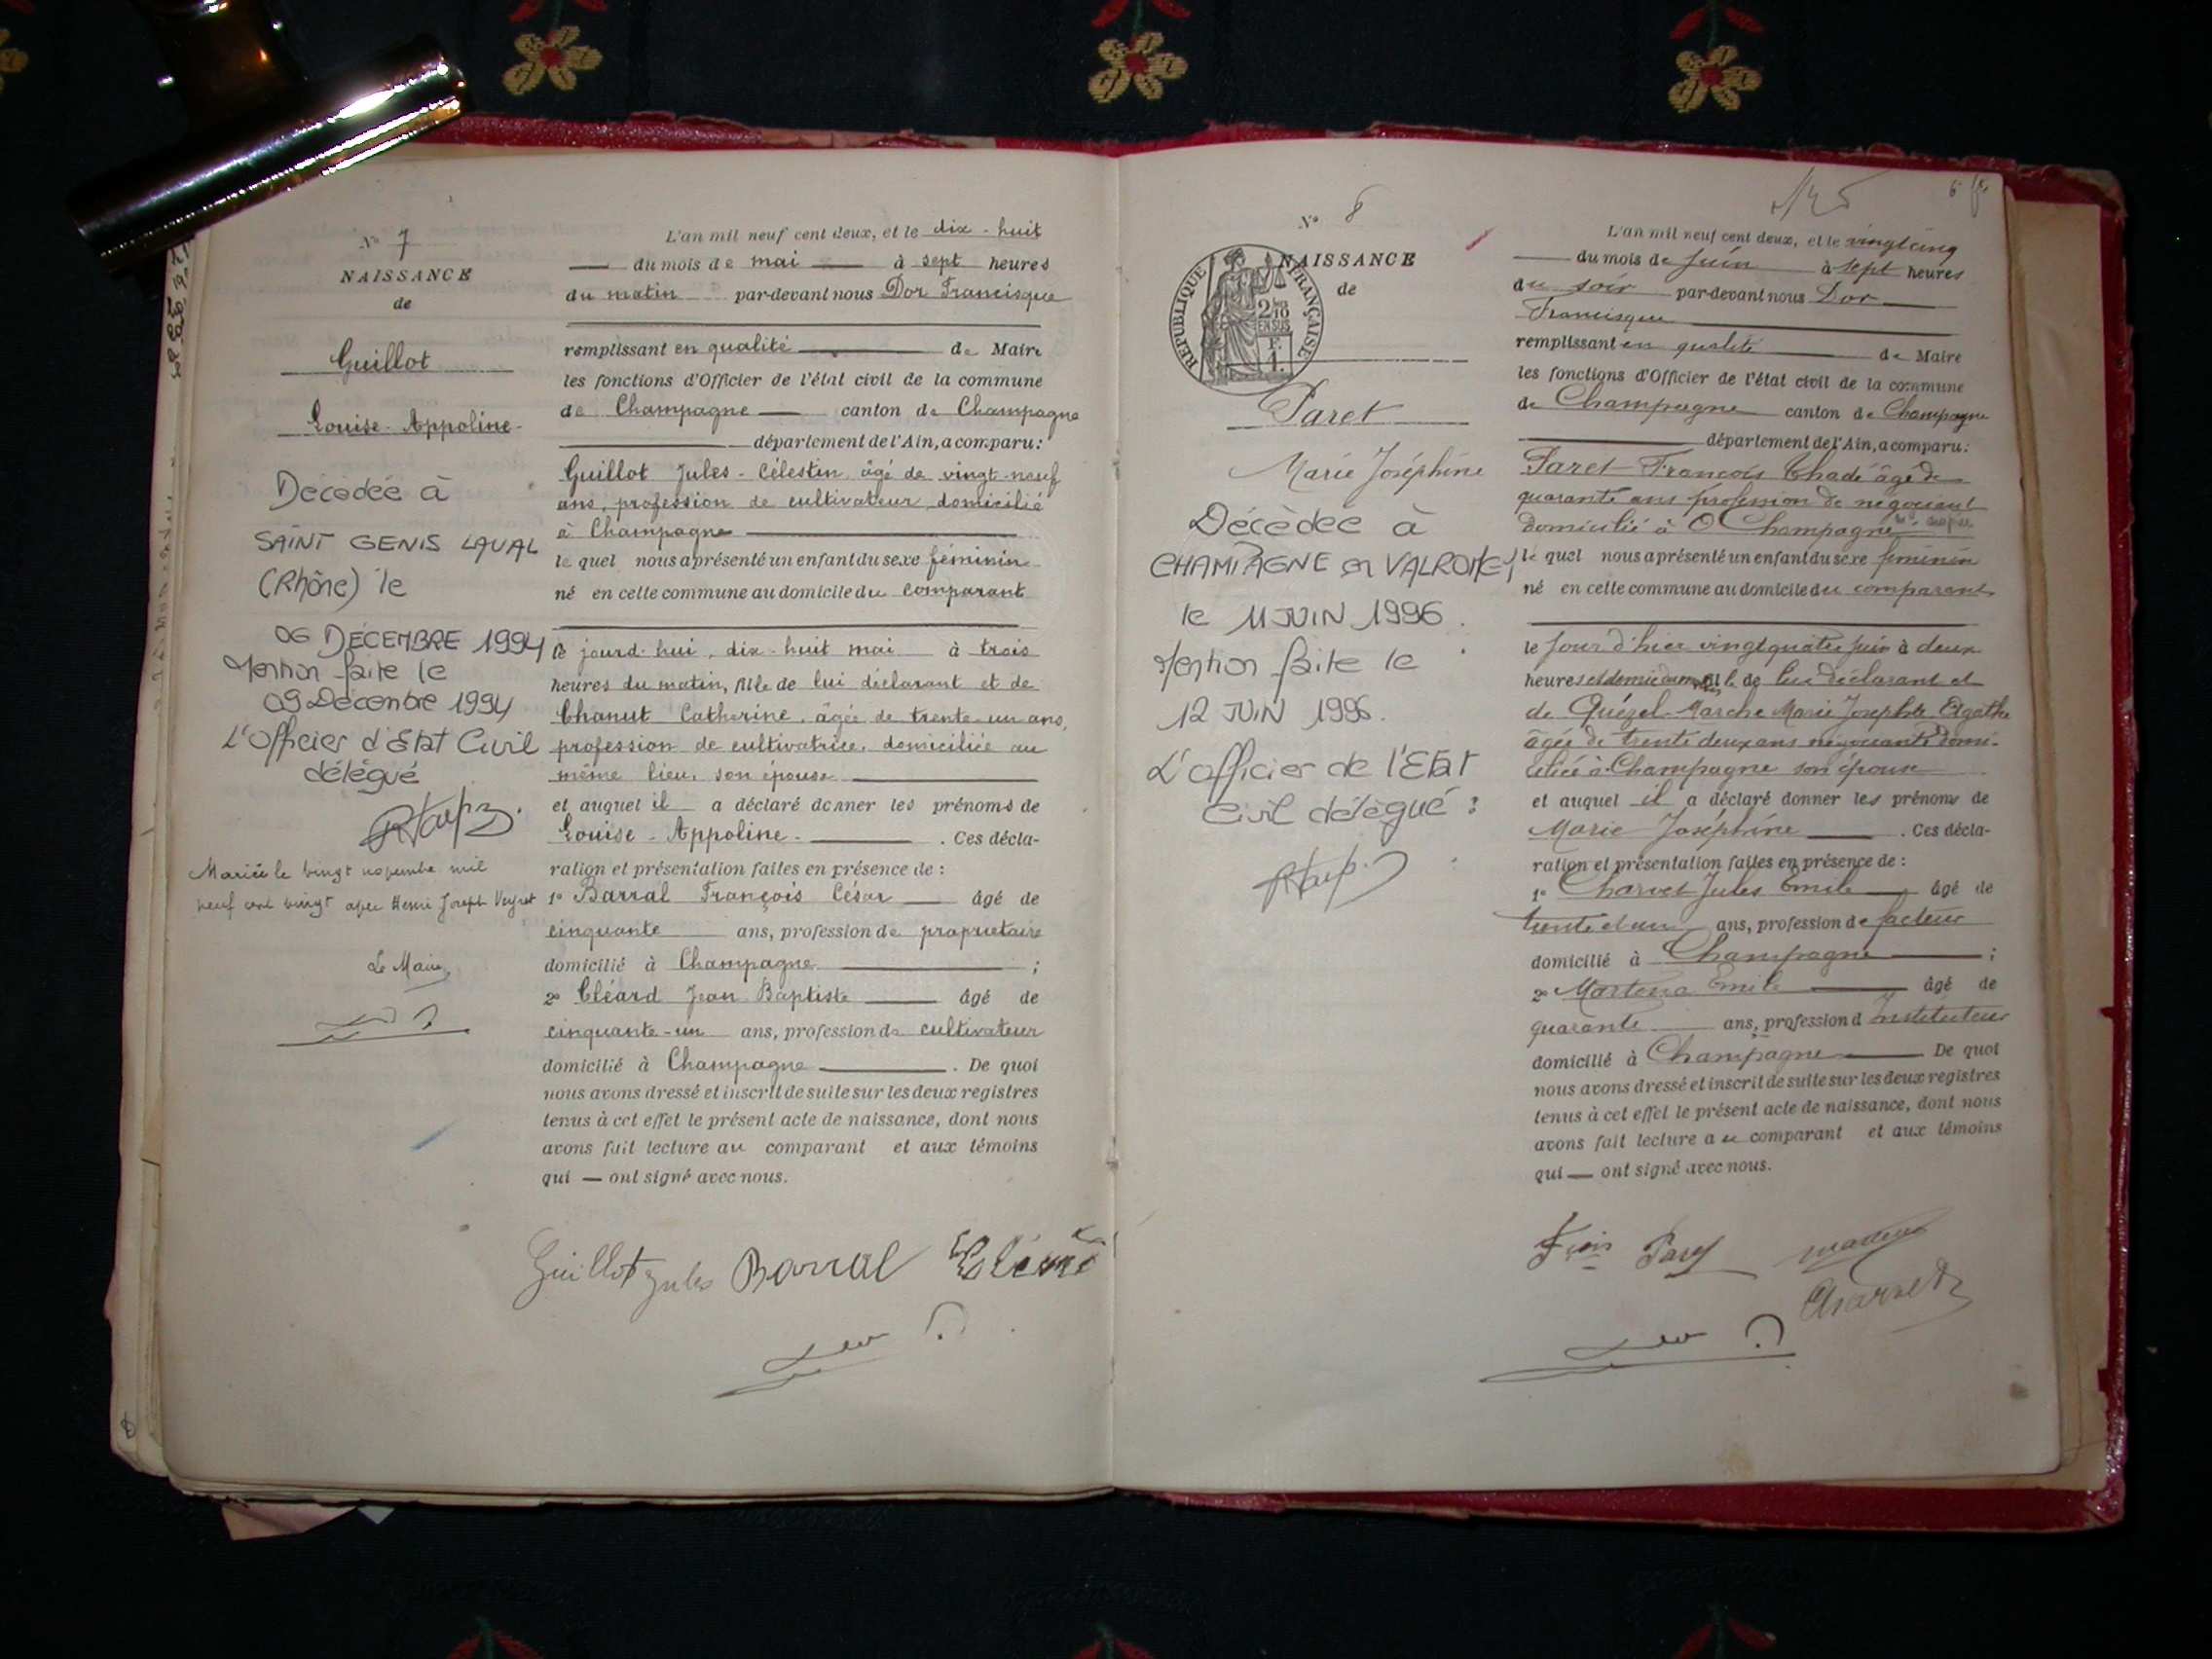 N° 7
NAISSANCE
de
Guillot
Louise-Appoline-
Décédée à
SAINT GENIS LAVAL
(Rhône) le
06 DÉCEMBRE 1994
Mention faite le
09 Décembre 1994
L'Officier d'Etat Civil
délégué
Mariée le vingt novembre mil
neuf cent vingt avec Henri Joseph Veyret
Le Maire,
L'an mil neuf cent deux, et le dix-huit
du mois de mai à sept heures
du matin par-devant nous Dor Francisque
remplissant en qualité de Maire
les fonctions d'Officier de l'état civil de la commune
de Champagne canton de Champagne
département de l'Ain, a comparu:
Guillot Jules-Célestin âgé de vingt-neuf
ans, profession de cultivateur domicilié
à Champagne
le quel nous a présenté un enfant du sexe féminin
né en cette commune au domicile du comparant
le jourd'hui, dix-huit mai à trois
heures du matin, fille de lui déclarant et de
Chanut Catherine, âgée de trente-un ans,
profession de cultivatrice, domiciliée au
même lieu, son épouse
et auquel il a déclaré donner les prénoms de
Louise-Appoline- . Ces décla-
ration et présentation faites en présence de :
1° Barral François César âgé de
cinquante ans, profession de propriétaire
domicilié à Champagne ;
2° Cléard Jean Baptiste âgé de
cinquante-un ans, profession de cultivateur
domicilié à Champagne . De quoi
nous avons dressé et inscrit de suite sur les deux registres
tenus à cet effet le présent acte de naissance, dont nous
avons fait lecture au comparant et aux témoins
qui — ont signé avec nous.
Guillot Jules Barral Cléard
N° 8
NAISSANCE
de
RÉPUBLIQUE FRANÇAISE
2/10
EN SUS
F.
1.
Paret
Marie Joséphine
Décédée à
CHAMPAGNE en VALROMEY
le 11 JUIN 1996.
Mention faite le
12 JUIN 1996.
L'officier de l'Etat
Civil délégué :
L'an mil neuf cent deux, et le vingt cinq
du mois de Juin à sept heures
du soir par-devant nous Dor
Francisque
remplissant en qualité de Maire
les fonctions d'Officier de l'état civil de la commune
de Champagne canton de Champagne
département de l'Ain, a comparu:
Paret François Chadé âgé de
quarante ans profession de négociant
domicilié à Champagne
le quel nous a présenté un enfant du sexe féminin
né en cette commune au domicile du comparant
le jour d'hier vingt quatre juin à deux
heures et demie du matin, fille de lui déclarant et
de Quézel-Marche Marie Josephte Agathe
âgée de trente deux ans négociante domi-
ciliée à Champagne son épouse
et auquel il a déclaré donner les prénoms de
Marie Joséphine . Ces décla-
ration et présentation faites en présence de :
1° Charvet Jules Emile âgé de
trente et un ans, profession de facteur
domicilié à Champagne ;
2° Emile âgé de
quarante ans, profession d Instituteur
domicilié à Champagne De quoi
nous avons dressé et inscrit de suite sur les deux registres
tenus à cet effet le présent acte de naissance, dont nous
avons fait lecture au comparant et aux témoins
qui — ont signé avec nous.
Fçois Paret
Charvet